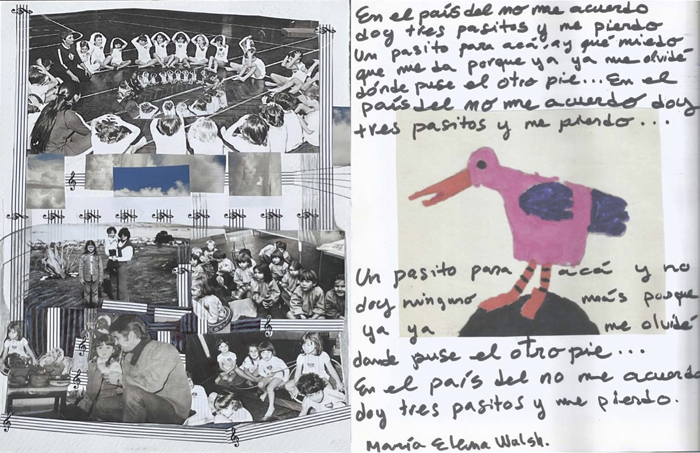 En el país del no me acuerdo
doy tres pasitos y me pierdo
Un pasito para acá, ay qué miedo
que me da porque ya ya me olvidé
dónde puse el otro pie... En el
país del no me acuerdo doy
tres pasitos y me pierdo...
Un pasito para acá y no
doy ninguno más porque
ya ya me olvidé
donde puse el otro pie...
En el país del no me acuerdo
doy tres pasitos y me pierdo.
María Elena Walsh.